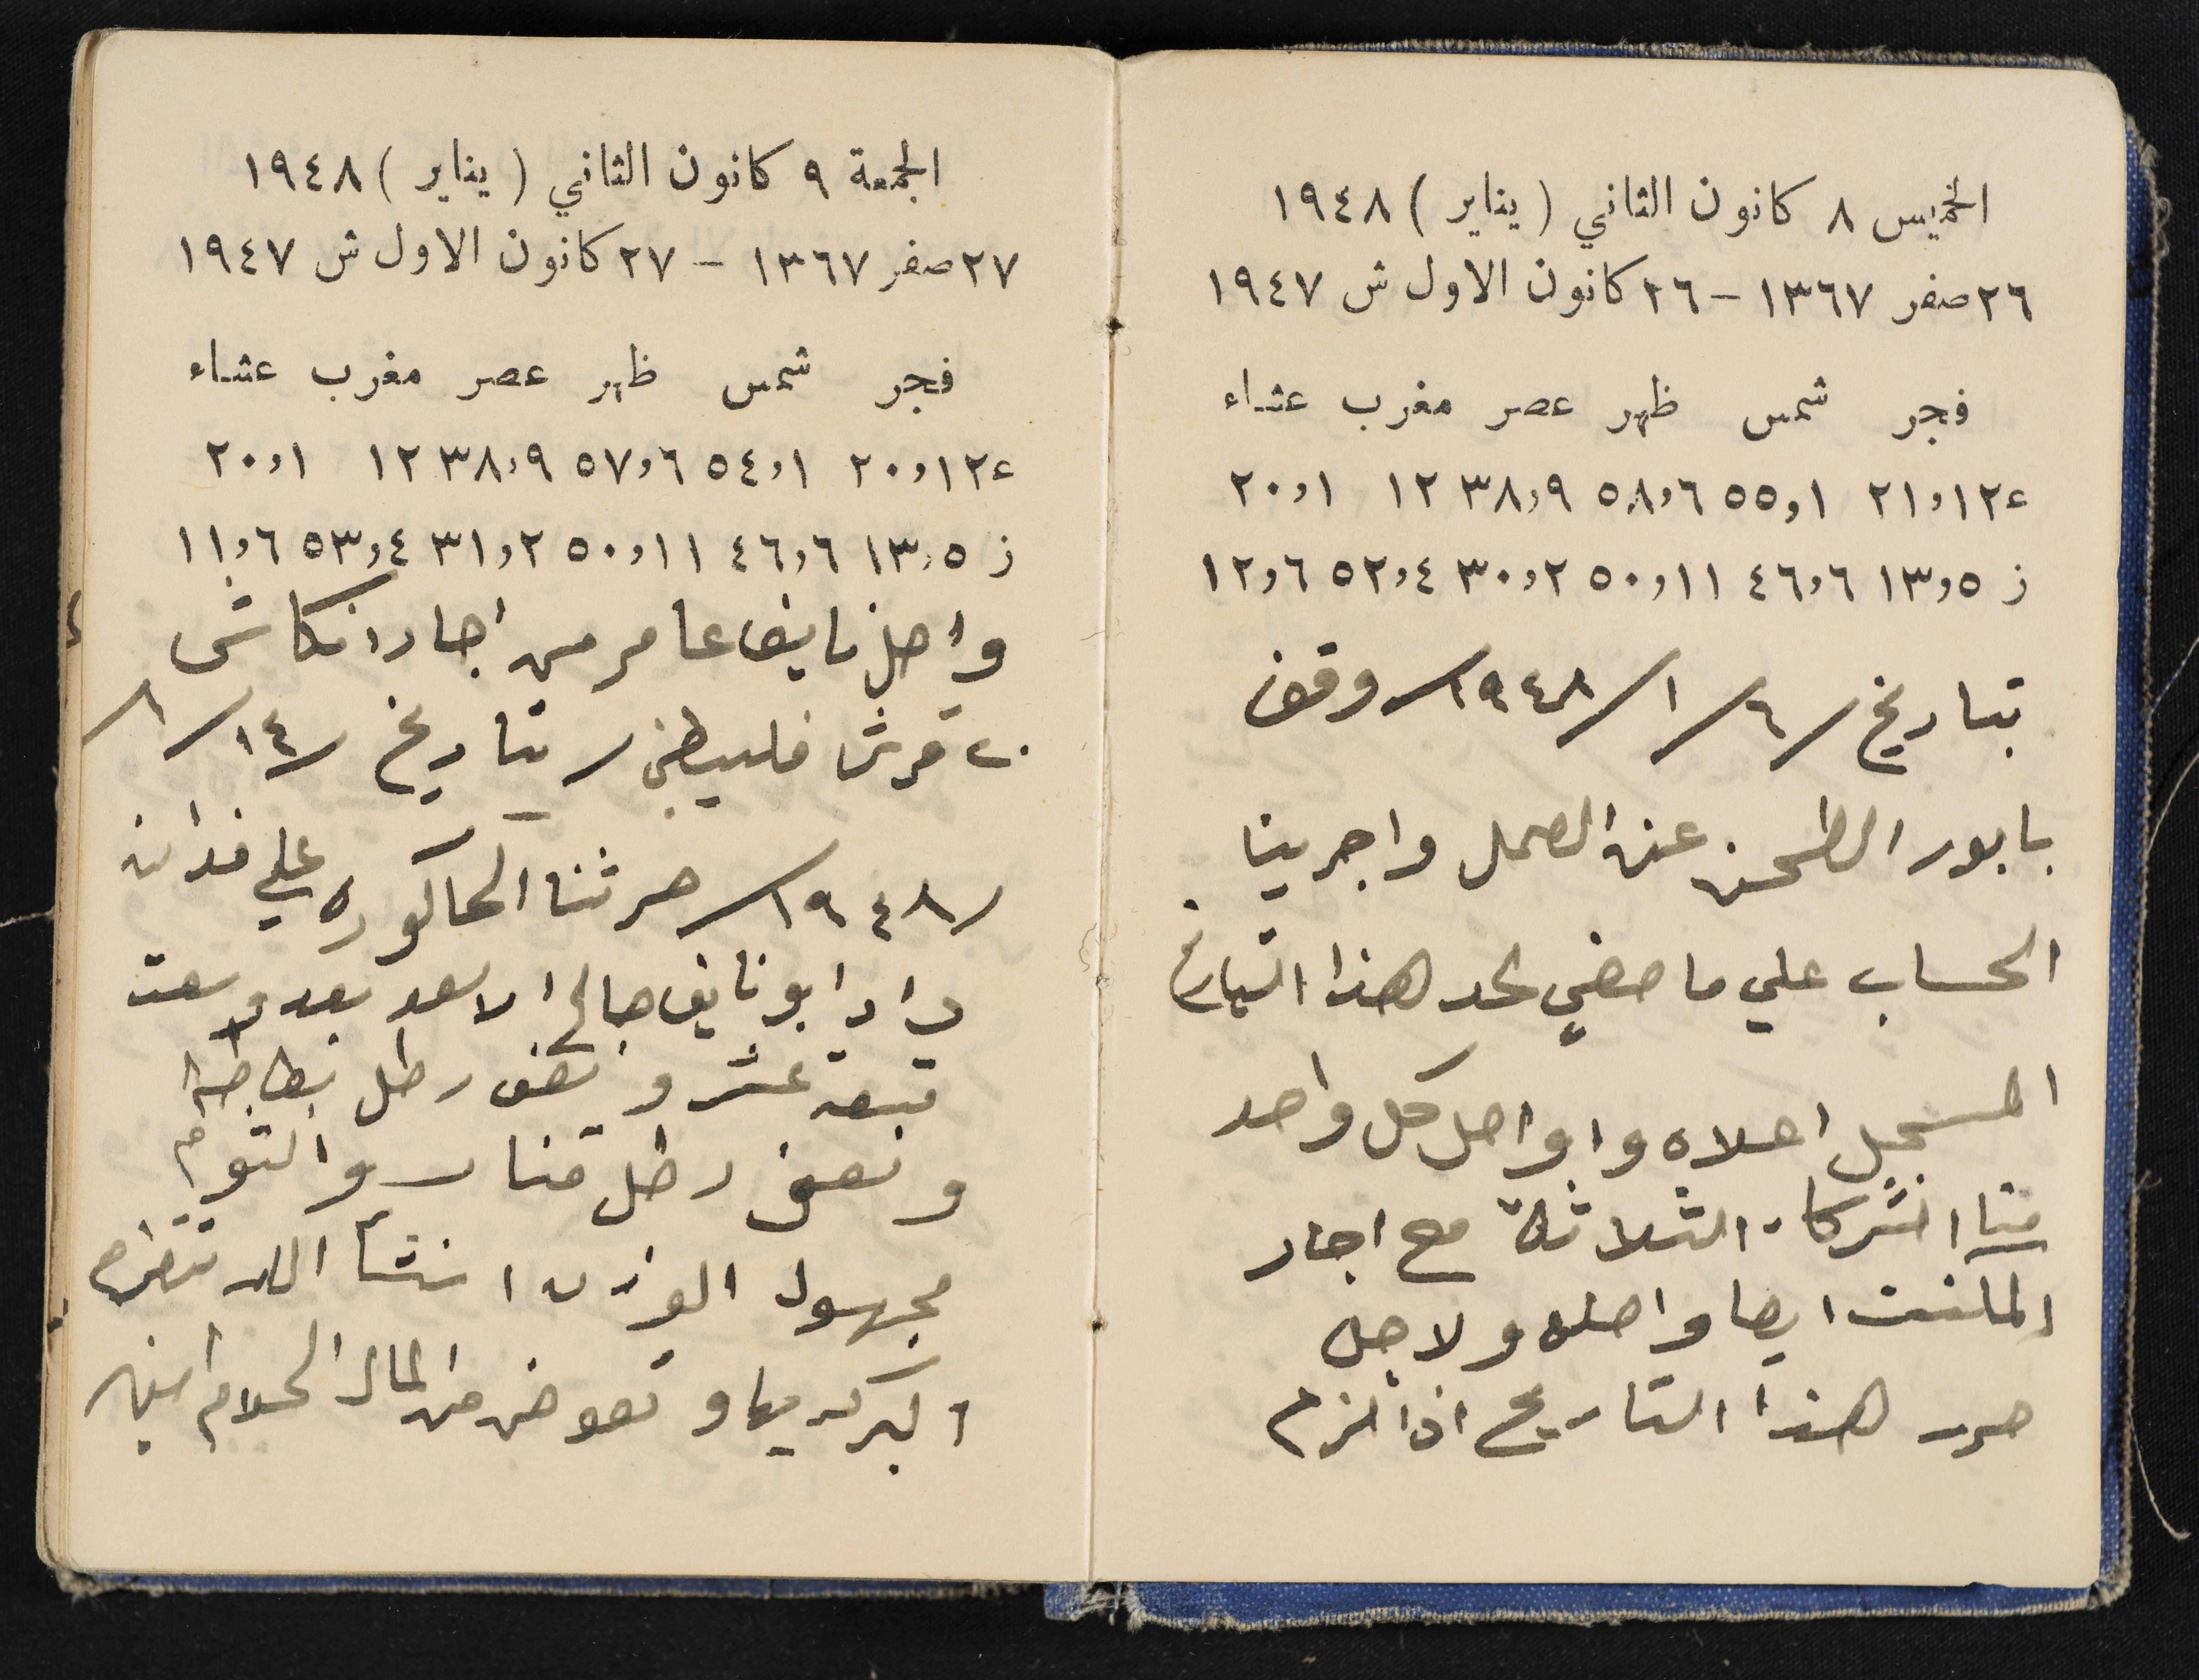 الخميس ٨ كانون الثاني (يناير) ١٩٤٨
٢٦ صفر ١٣٦٧ – ٢٦ كانون الاول ش ١٩٤٧
فجر شمس ظهر عصر مغرب عشاء
ع ١٢،٢١ ١،٥٥ ٦،٥٨ ٩،٣٨ ١٢ ١،٢٠
ز ٥،١٣ ٦،٤٦ ١١،٥٠ ٢،٣٠ ٤،٥٢ ٦،١٢
بتاريخ /٦/١/١٩٤٨/ وقف
بابور الطحن عن العمل واجرينا
الحساب علي ما مضي لحد هذا التاريخ
المسجل اعلاه و واصل كل واحد
منا الشركاء الثلاثة مع اجار
ايضا واصله ولاجل
حرر هذا التاريخ اذا لزم
الجمعة ٩ كانون الثاني (يناير) ١٩٤٨
٢٧ صفر ١٣٦٧ – ٢٧ كانون الاول ش ١٩٤٧
فجر شمس ظهر عصر مغرب عشاء
ع ١٢،٢٠ ١،٥٤ ٦،٥٧ ٩،٣٨ ١٢ ١،٢٠
ز ٥،١٣ ٦،٤٦ ١١،٥٠ ٢،٣١ ٤،٥٣ ٦،١١
واصل نايف عامر من اجار
٢٠ قرش فلسطيني / بتاريخ /١٤/١
/١٩٤٨/ حرثنا الحاكوره علي فدان
ابو نايف صالح الاسعد بعد
عشر و نصف رطل بطاطا
و نصف رطل والثوم
مجهول الوزن انشأ الله
البركه و تعوض من المال الحلال امين